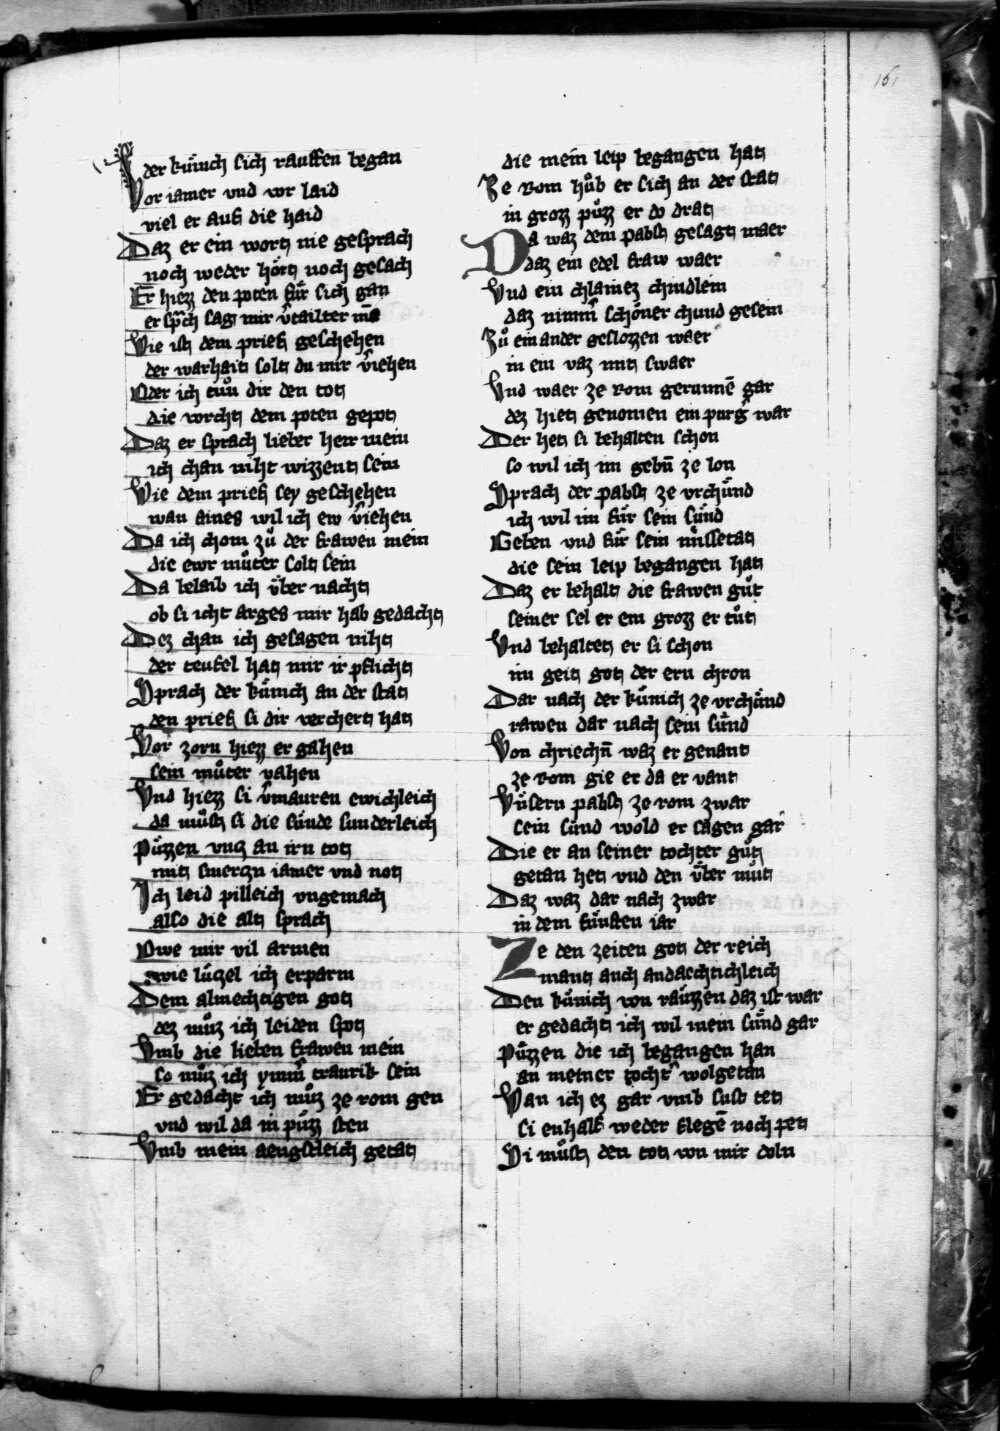 161
der kuͤnch sich rauffen began
Vor iamer vnd vor laid
viel er auf die haid
Daz er ein wort nie gesprach
noch weder hoͤrt noch gesach
Er hiezz den poten fuͤr sich gan
er sp̄ch sag mir v̄tailter mā
Wie ist dem prief geschehen
der warhait solt du mir v̄iehen
Oder ich tuͦn dir den tot
die vorcht dem poten gepot
Daz er sprach lieber herr mein
ich chan niht wizzent sein
Wie dem prief sey geschehen
wan aines wil ich ew v̄iehen
Da ich chom zuͦ der frawen mein
die ewr muͦter solt sein
Da belaib ich uͤber nacht
ob si icht arges mir hab gedacht
Dez chan ich gesagen niht
der teufel hat mir ir pflicht
Sprach der kuͤnich an der stat
den prief si dir verchert hat
Vor zorn hiezz er gahen
sein muͦter vahen
Vnd hiezz si v̄mauren ewichleich
da muͦst si die suͤnde sunderleich
Puͤzzen vncz an irn tot
mit smerczn iamer vnd not
Ich leid pilleich vngemach
also die alt sprach
Owe mir vil armen
wie luͤczel ich erparm
Dem almechtigen got
dez muͦz ich leiden spot
Vmb die lieben frawen mein
so muͦz ich ymm̄ traurib sein
Er gedacht ich muͦz ze rom gen
vnd wil da in puͤzz sten
Vmb mein aengstleich getat
die mein leip begangen hat
Ze Rom huͦb er sich an der stat
in grozz puͤzz er do drat
Da waz dem pabst gesagt maer
daz ein edel fraw waer
Vnd ein chlainez chindlein
daz nimm̄ schoͤner chund gesein
Zuͦ ein ander geslozzen waer
in ein vaz mit swaer
Vnd waer ze rom gerunnē gar
dez hiet genomen ein purḡ war
Der het si behalten schon
so wil ich im gebn̄ ze lon
Sprach der pabst ze vrchuͤnd
ich wil im fuͤr sein suͤnd
Geben vnd fuͤr sein missetat
die sein leip begangen hat
Daz er behalt die frawen guͦt
seiner sel er ein grozz er tuͦt
Vnd behaltet er si schon
im geit got der ern chron
Dar nach der kuͤnich ze vrchuͤnd
rawen dar nach sein suͤnd
Von chriechn̄ waz er genant
ze rom gie er da er vant
Vnsern pabst ze rom zwar
sein suͤnd wold er sagen gar
Die er an seiner tochter guͦt
getan het vnd den uͤber muͦt
Daz waz dar nach zwar
in dem fuͤnften iar
Ze den zeiten got der reich
mant auch andaechtichleich
Den kuͤnich von raͤuzzen daz ist war
er gedacht ich wil mein suͤnd gar
Puͤzzen die ich begangen han
an meiner tocht̄ wolgetan
Wan ich ez gar vmb sust tet
si enhalf weder flegē noch pet
Si muͦst den tot von mir doln